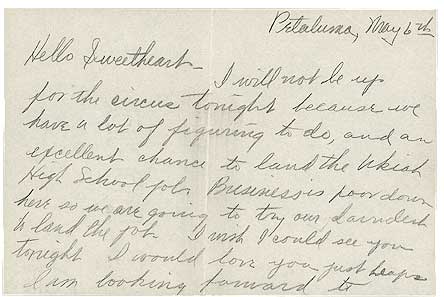 Petaluma, May 6th
Hello Sweetheart -
I will not be up
for the circus tonight because we
have a lot of figuring to do, and an
excellent chance to land the Ukiah
High School job. Business is poor down
here so we are going to try our darndest
to land the job. I wish I could see you
tonight I would love you just heaps
I am looking forward to